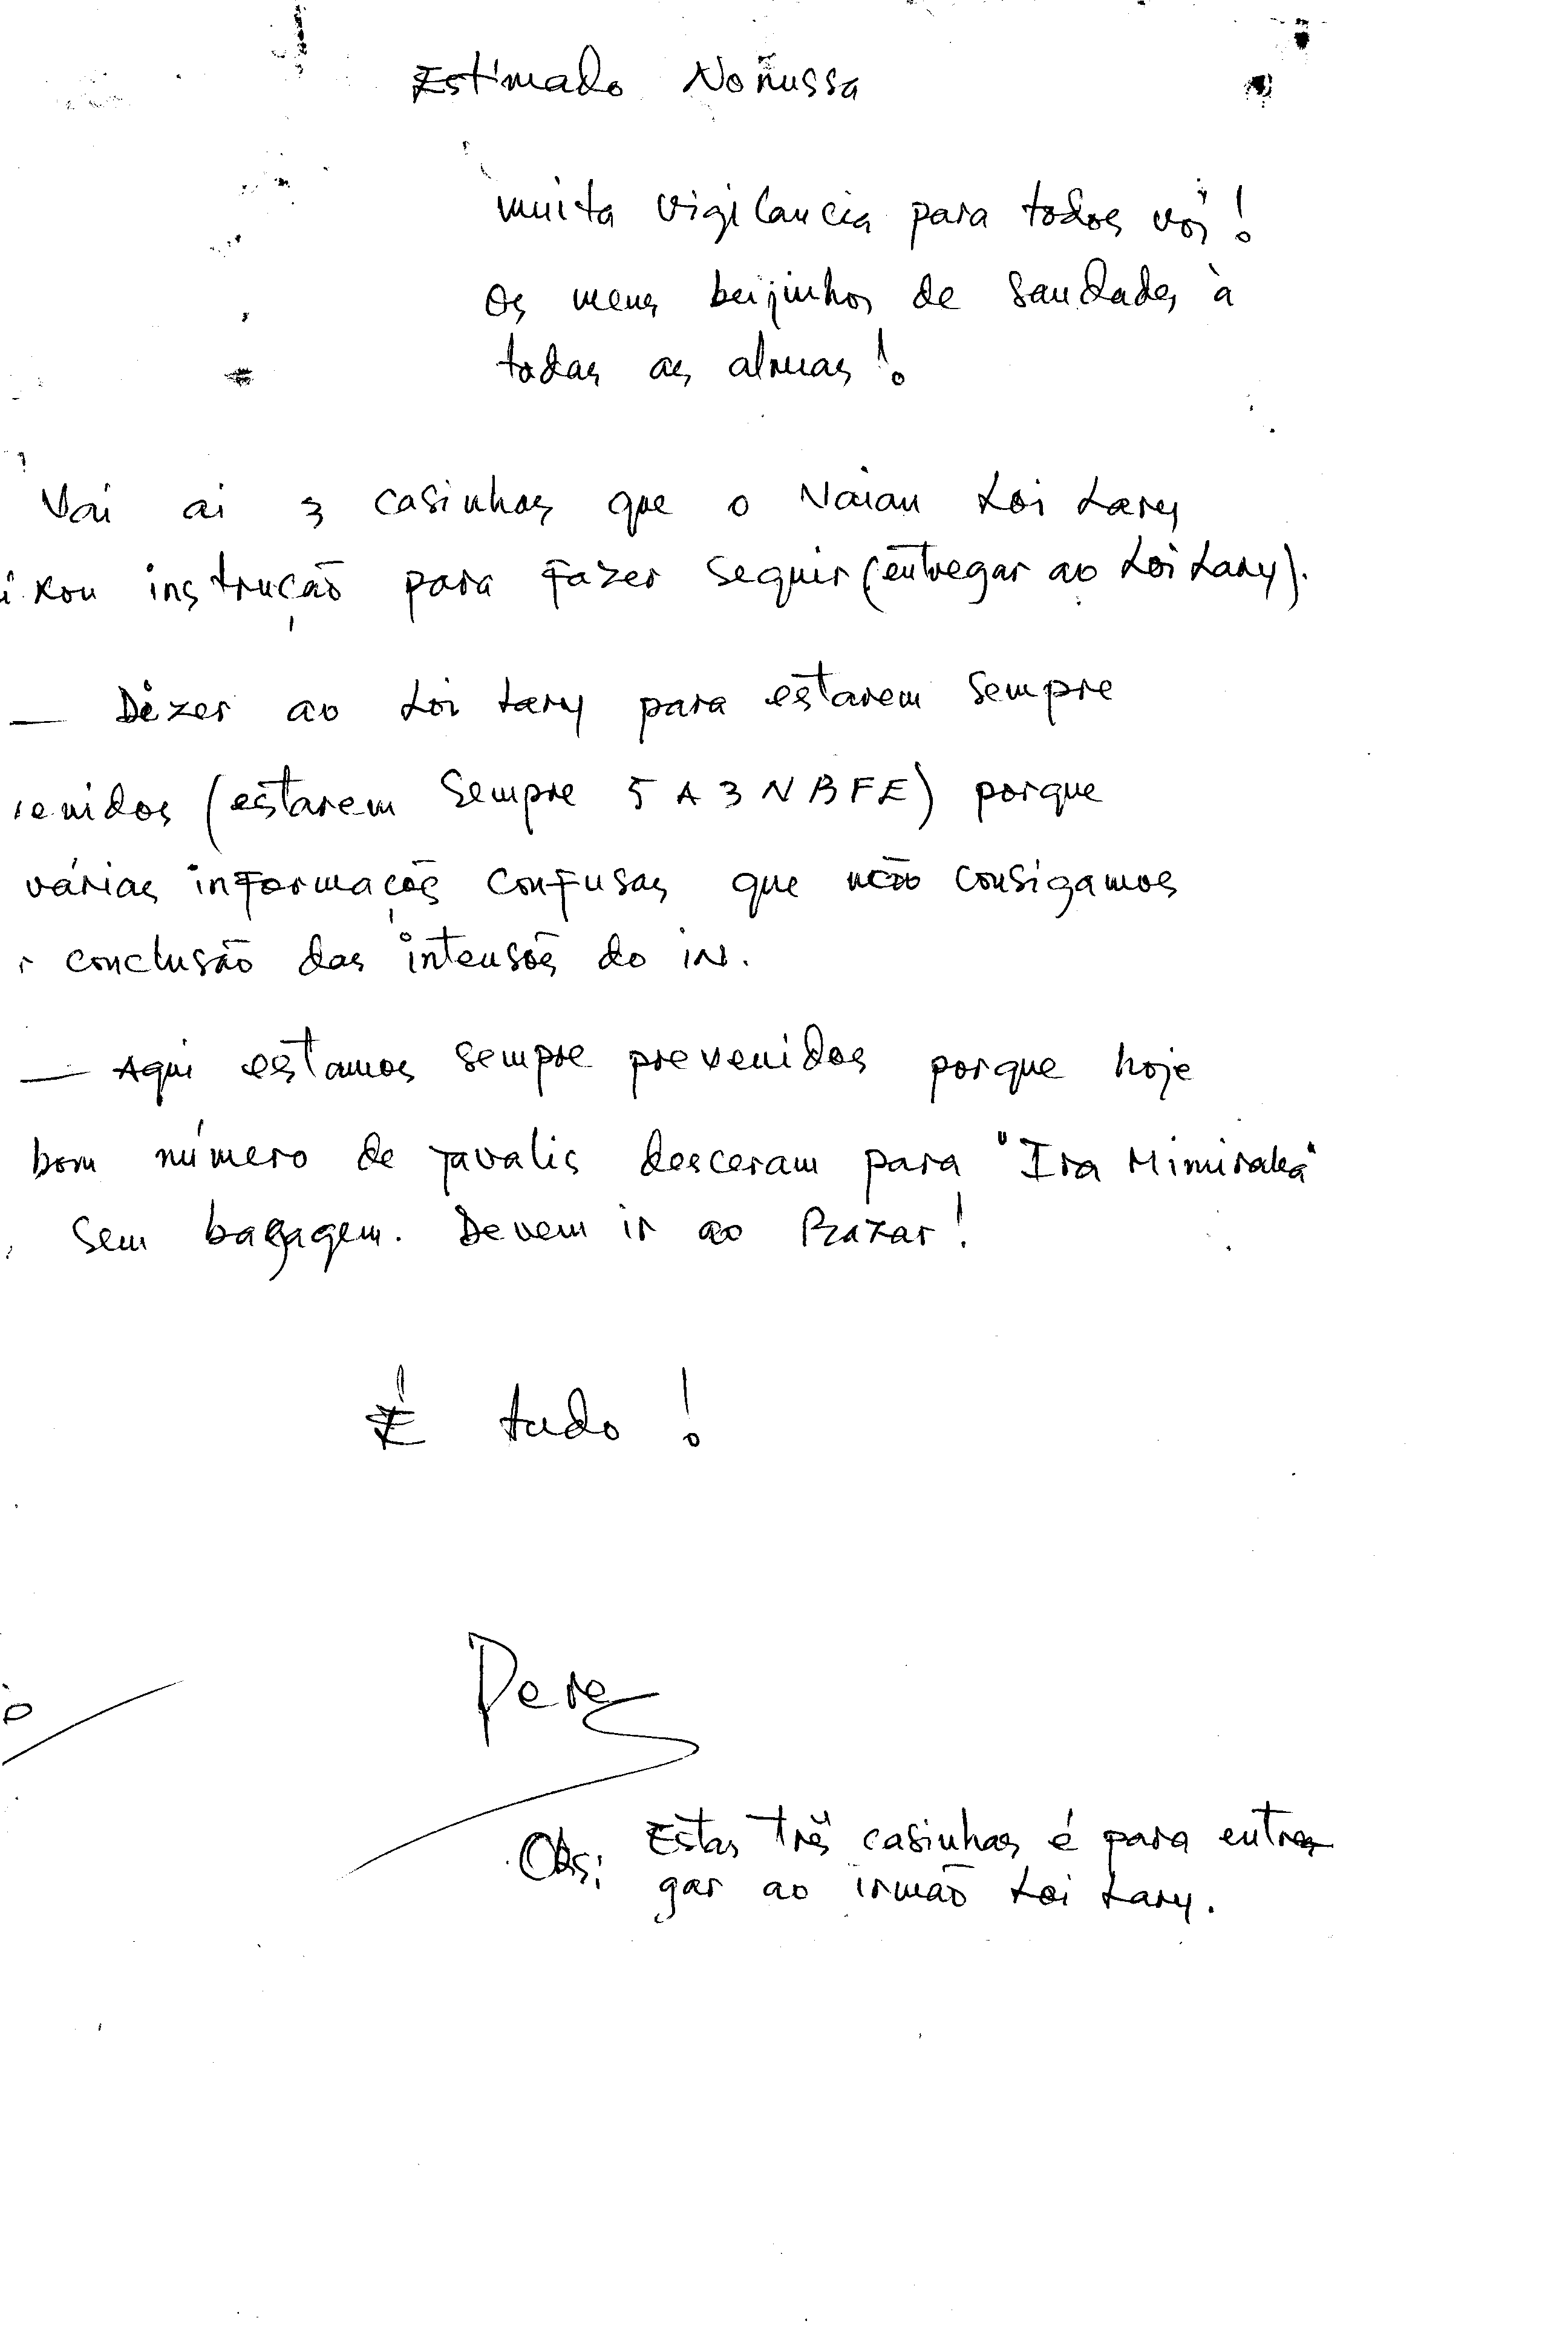 Estimado Noñussa
muita vigilancia para todos vós!
os meus beijinhos de saudades à
todas as almas!
Vai ai 3 casinhas que o Naian Loi Lary
ixou instrução para fazer seguir (entregar ao Loi Lary).
— Dizer ao Loi Lary para estarem sempre
enidos (estarem sempre 5 A 3 N B F E) porque
várias informações confusas que não consigamos
r conclusão das intensões do iN.
— Aqui estamos sempre prevenidos porque hoje
bom número de javalis desceram para "Ira Mimiraka"
sem bagagem. Devem ir ao Bazar!
É tudo!
Pere
Obs: Estas três casinhas é para entre
gar ao irmão Loi Lary.